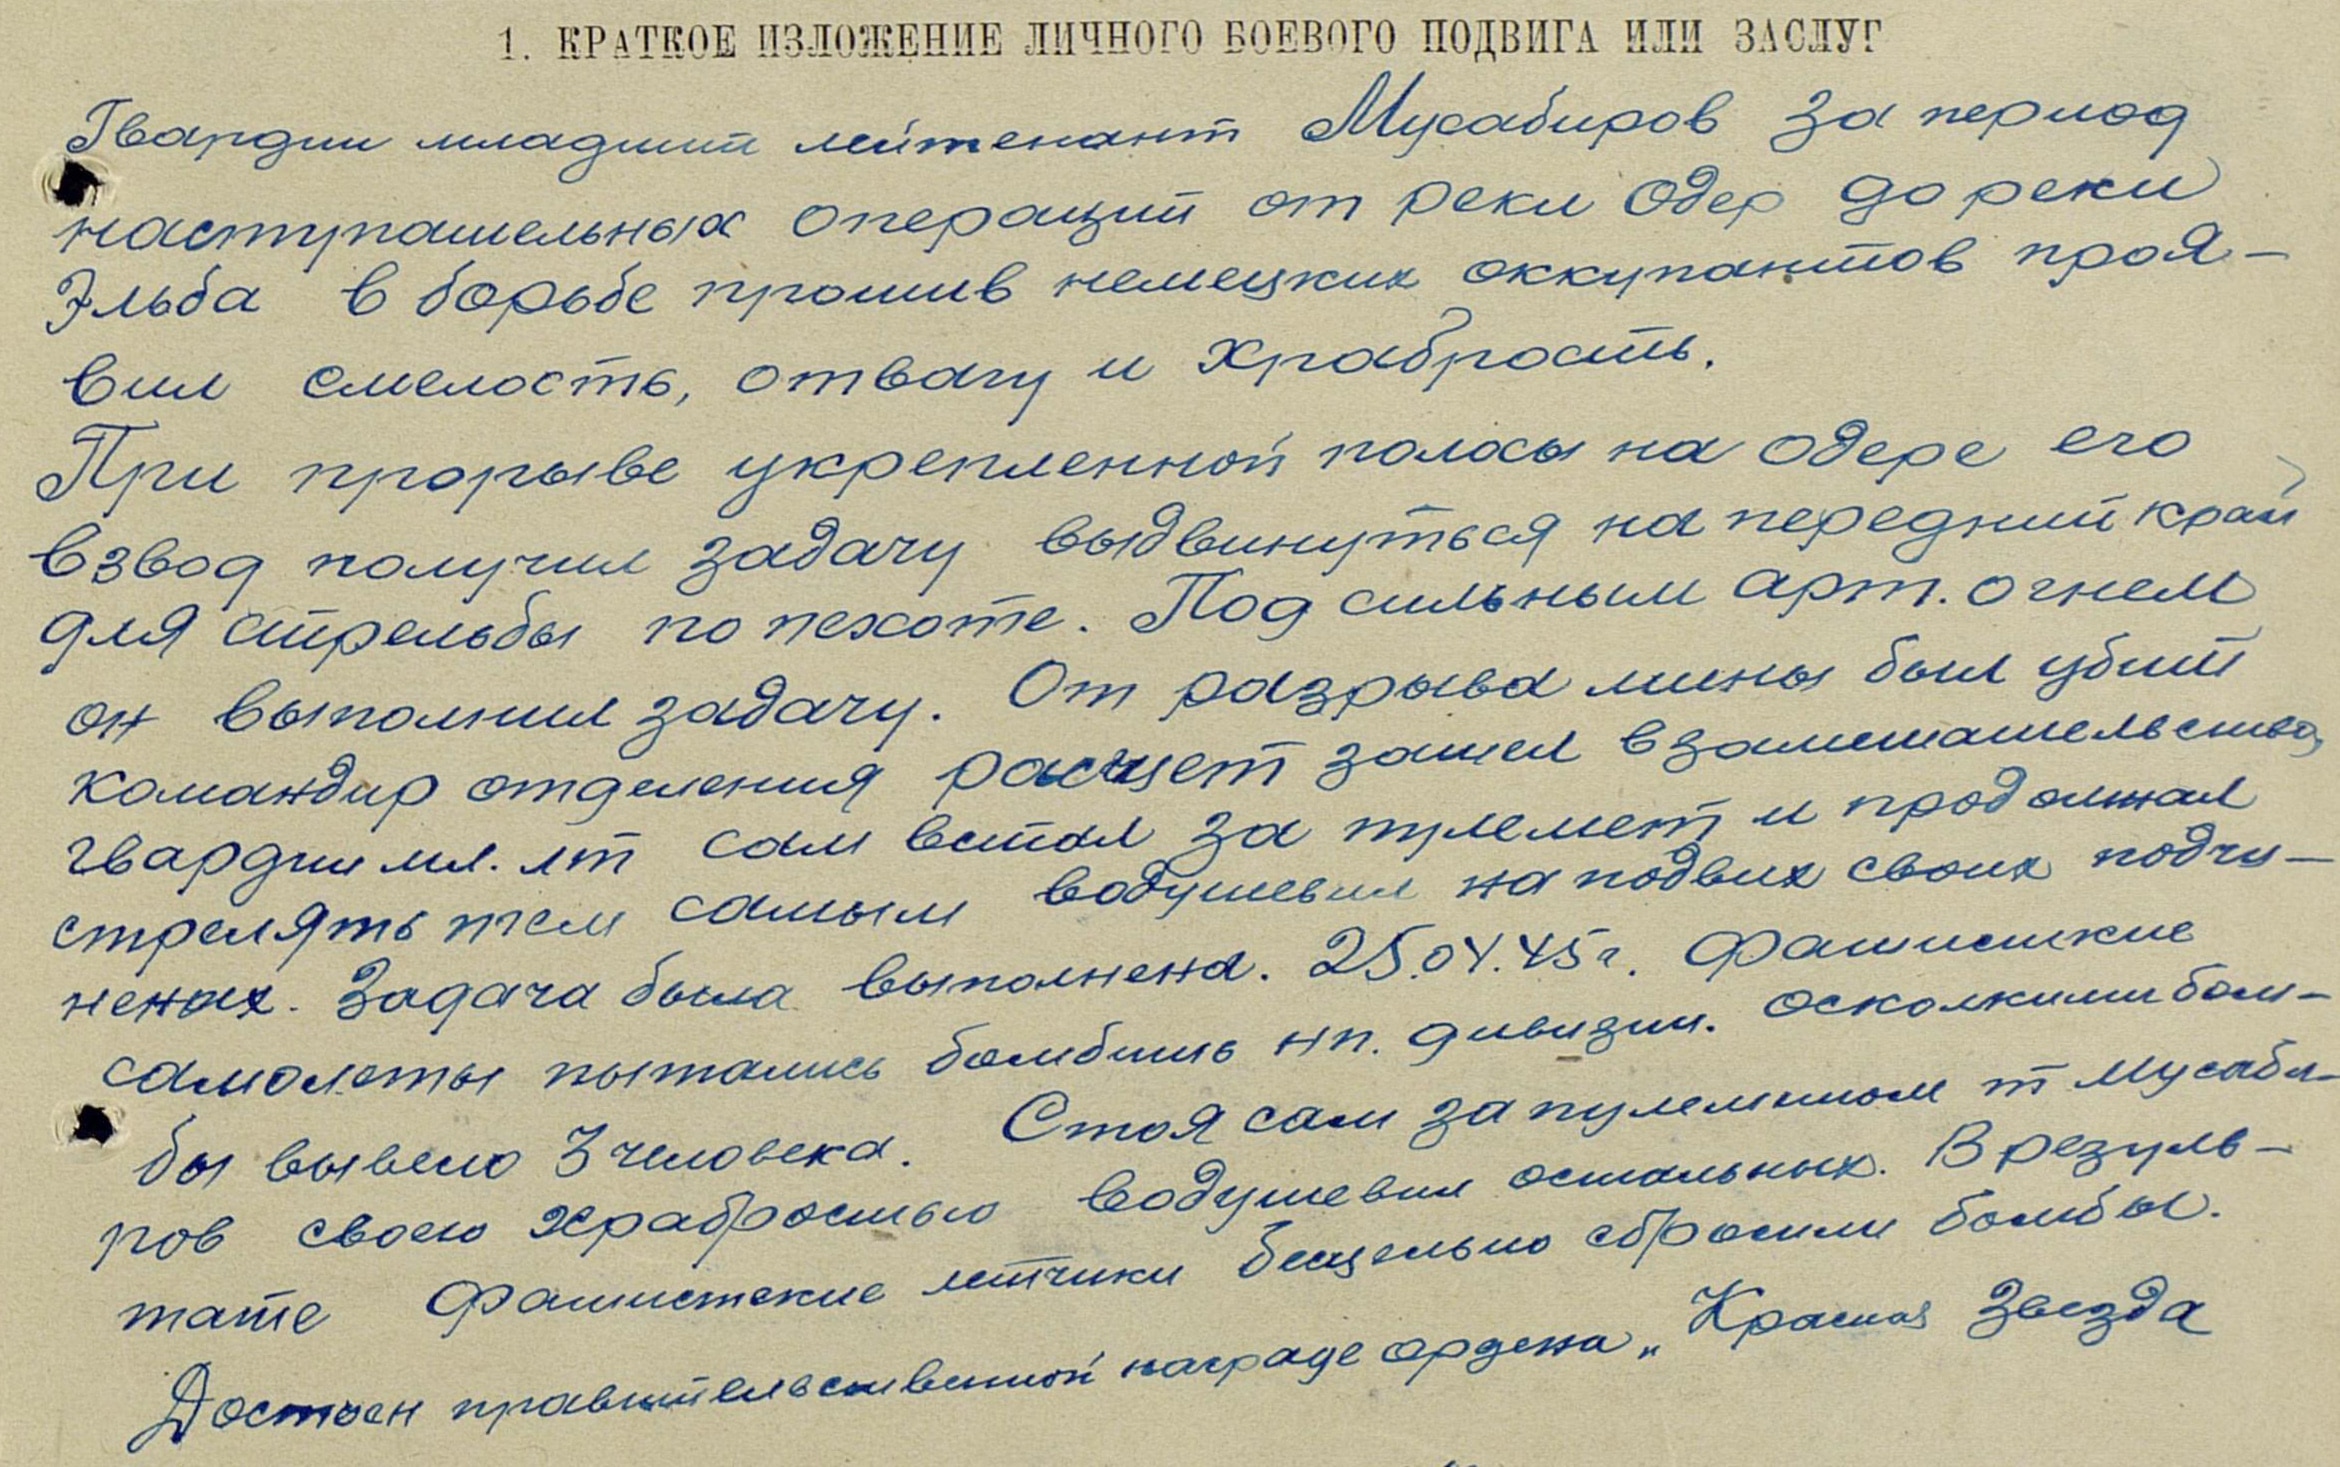 1. КРАТКОЕ ИЗЛОЖЕНИЕ ЛИЧНОГО БОЕВОГО ПОДВИГА ИЛИ ЗАСЛУГ
Гвардии младший лейтенант Мусабиров за период
наступательных операций от реки Одер до реки
Эльба в борьбе против немецких оккупантов проя-
вил смелость, отвагу и храбрость.
При прорыве укрепленной полосы на Одере его
взвод получил задачу выдвинуться на передний край
для стрельбы по пехоте. Под сильным арт. огнем
он выполнил задачу. От разрыва мины был убит
командир отделения расчет зашел в замешательство,
гвардии мл. лт сам встал за пулемет и продолжал
стрелять тем самым водушевил на подвих своих подчи-
неных. Задача была выполнена. 25.04.45г. Фашистские
самолеты пытались бомбить нп. дивизии. осколкими бом-
бы вывело 3 человека. Стоя сам за пулеметом т Мусаби-
ров своею храбростью водушевил остальных. В резуль-
тате фашистские летчики бесцельно сбросили бомбы.
Достоен правительственной награде ордена „Красная Звезда